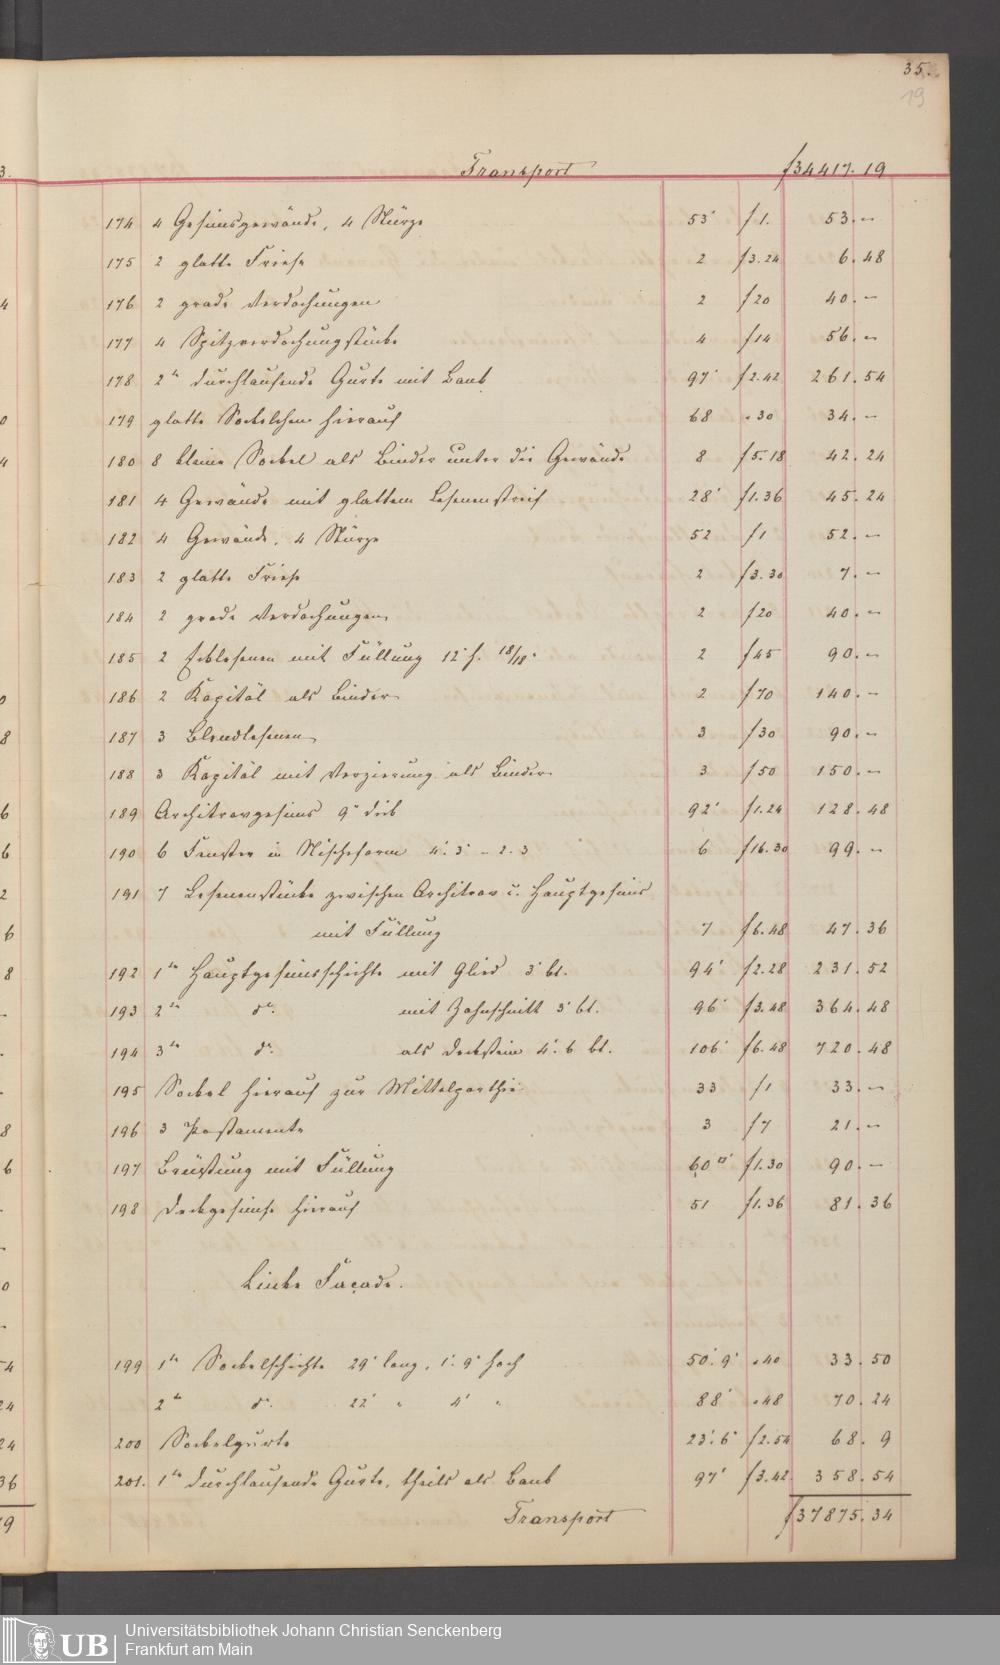 35.
19
Transport f 34417. 19
174 4 Gesimsgewände, 4 Stürze 53' f 1. 53. –
175 2 glatte Friese 2 f 3.24 6. 48
176 2 grade Verdachungen 2 f 20 40. –
177 4 Spitzverdachungstücke 4 f 14 56. –
178 2te durchlaufende Gurte mit Bank 97' f 2.42 261. 54
179 glatte Sockelchen hierauf 68 " 30 34. –
180 8 kleine Sockel als Binder unter die Gewände 8 f 5.18 42. 24
181 4 Gewände mit glattem Lesenenstreif 28' f 1.36 45. 24
182 4 Gewände, 4 Stürze 52 f 1 52. –
183 2 glatte Friese 2 f 3.30 7. –
184 2 grade Verdachungen 2 f 20 40. –
185 2 Ecklesenen mit Füllung 12' h. 18/18" 2 f 45 90. –
186 2 Kapitäl als Binder 2 f 70 140. –
187 3 Blendlesenen 3 f 30 90. –
188 3 Kapitäl mit Verzierung als Binder 3 f 50 150. –
189 Architravgesims 9" dick 92' f 1.24 128. 48
190 6 Fenster in Nischeform 4'.3" – 2.3 6 f 16.30 99. –
191 7 Lesenenstücke zwischen Architrav u. Hauptgesims
mit Füllung 7 f 6.48 47. 36
192 1te Hauptgesimsschichte mit Glied 3' bt. 94' f 2.28 231. 52
193 2te do. mit Zahnschnitt 3' bt. 96' f 3.48 364. 48
194 3te do. als Deckstein 4'.6 bt. 106' f 6.48 720. 48
195 Sockel hierauf zur Mittelparthie 33 f 1 33. –
196 3 Postamente 3 f 7 21. –
197 Brüstung mit Füllung 60□' f 1.30 90. –
198 Deckgesimse hierauf 51 f 1.36 81. 36
Linke Façade.
199 1te Sockelschichte 29' lang, 1'.9" hoch 50'.9" " 40 33. 50
2te do. 22' " 4' " 88' " 48 70. 24
200 Sockelgurte 23'.6" f 2.54 68. 9
201. 1te durchlaufende Gurte, theils als Bank 97' f 3.42 358. 54
Transport f 37875. 34
UB
Universitätsbibliothek Johann Christian Senckenberg
Frankfurt am Main